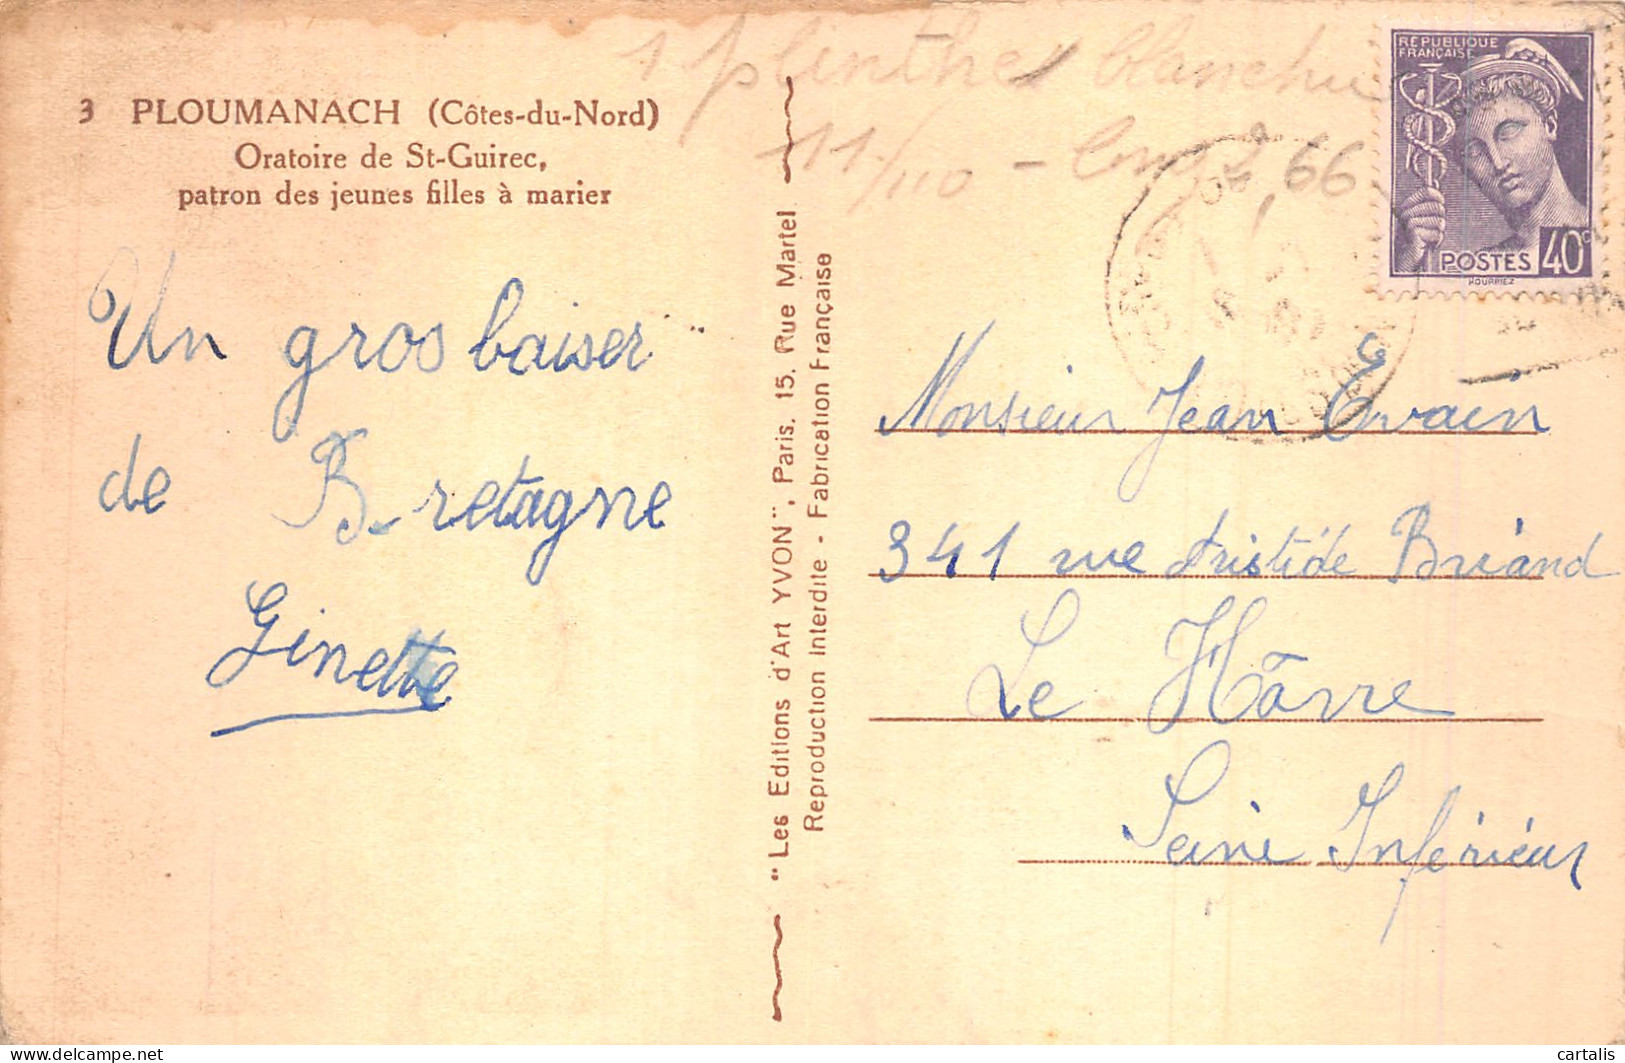 3 PLOUMANACH (Côtes-du-Nord)
Oratoire de St-Guirec,
patron des jeunes filles à marier
1 plinthe blanche
11/110 - Long 2,66
REPUBLIQUE
FRANÇAISE
POSTES 40c
HOURRIEZ
Un gros baiser
de Bretagne
Ginette
"Les Editions d'Art YVON", Paris, 15, Rue Martel
Reproduction Interdite - Fabrication Française
Monsieur Jean Évrain
341 rue Aristide Briand
Le Hâvre
Seine Inférieur
delcampe.net
cartalis